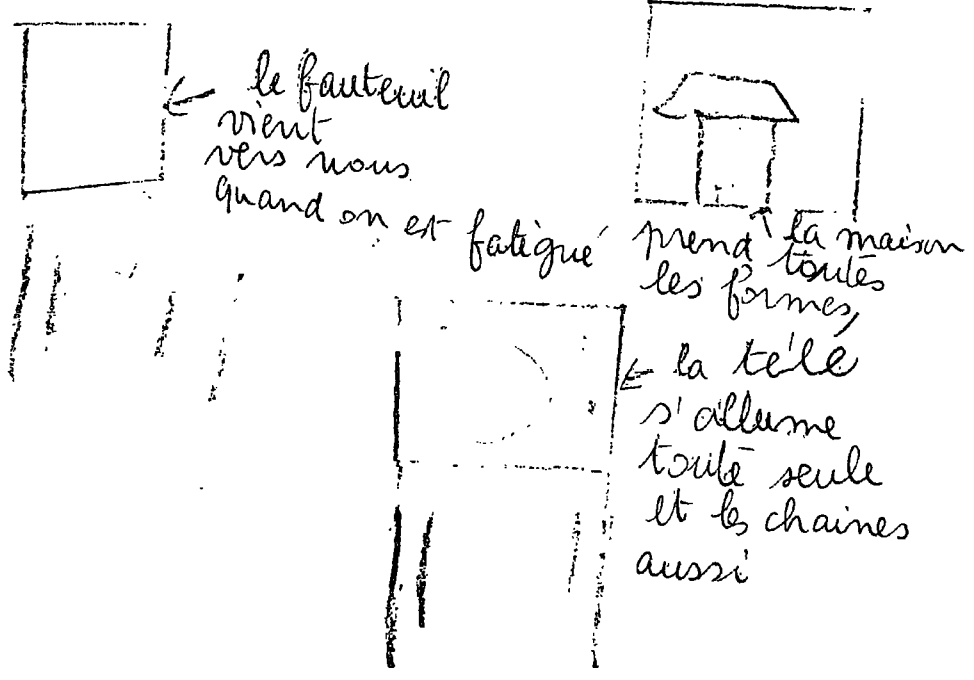 le fauteuil
vient
vers nous
quand on est fatigué
la maison
prend toutes
les formes,
la télé
s'allume
toute seule
et les chaines
aussi